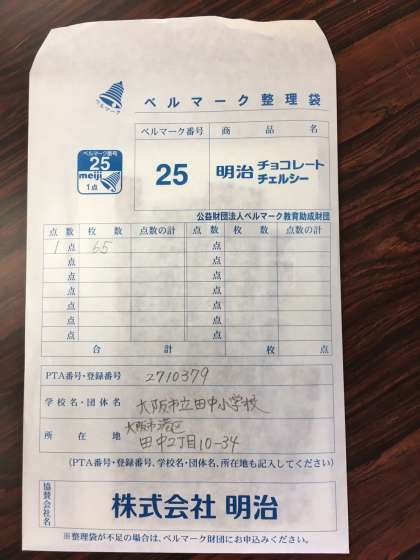 ベルマーク
ベルマーク整理袋
ベルマーク番号 商品名
ベルマーク番号
25
meiji
1点
25 明治 チョコレート
チェルシー
公益財団法人ベルマーク教育助成財団
点数 枚数 点数の計 点数 枚数 点数の計
1点 65 点
点 点
点 点
点 点
点 点
点 点
点 点
合計 枚 点
PTA番号・登録番号 2710379
学校名・団体名 大阪市立田中小学校
所在地 大阪市港区
田中2丁目10-34
(PTA番号・登録番号、学校名・団体名、所在地も記入してください)
協賛会社名 株式会社 明治
※整理袋が不足の場合は、ベルマーク財団にお申込みください。